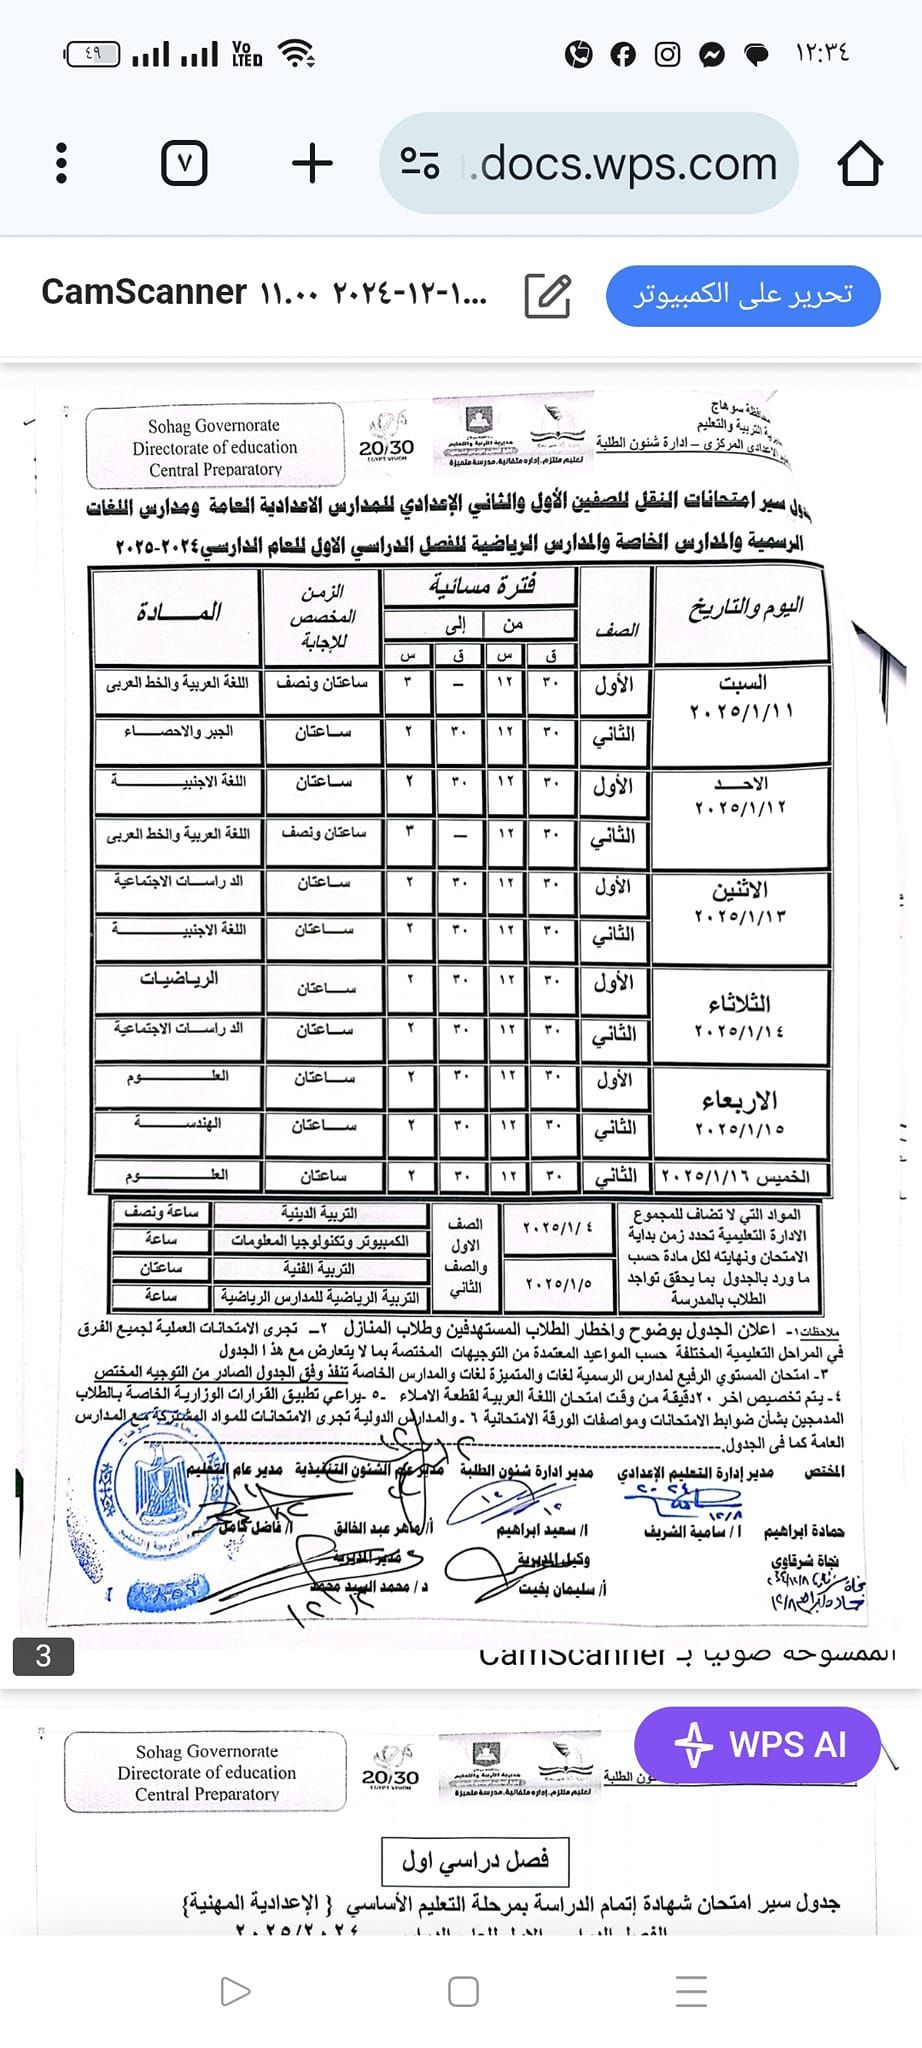 ١٢:٣٤
Vo LTE
٤٩
.docs.wps.com
٧
CamScanner ١١.٠٠ ٢٠٢٤-١٢-١...
تحرير على الكمبيوتر
Sohag Governorate
Directorate of education
Central Preparatory
20/30
EGYPT VISION
مديرية التربية والتعليم
تعليم ملتزم.إداره متفانية.مدرسة متميزة
سوهاج
التربية والتعليم
المركزى – ادارة شئون الطلبة
سير امتحانات النقل للصفين الأول والثاني الإعدادي للمدارس الاعدادية العامة ومدارس اللغات
الرسمية والمدارس الخاصة والمدارس الرياضية للفصل الدراسي الاول للعام الدارسي ٢٠٢٤-٢٠٢٥
اليوم والتاريخ الصف فترة مسائية الزمن المخصص للإجابة المـــادة
من إلى
ق س ق س
السبت ٢٠٢٥/١/١١ الأول ٣٠ ١٢ — ٣ ساعتان ونصف اللغة العربية والخط العربى
الثاني ٣٠ ١٢ ٣٠ ٢ ساعتان الجبر والاحصاء
الاحد ٢٠٢٥/١/١٢ الأول ٣٠ ١٢ ٣٠ ٢ ساعتان اللغة الاجنبية
الثاني ٣٠ ١٢ — ٣ ساعتان ونصف اللغة العربية والخط العربى
الاثنين ٢٠٢٥/١/١٣ الأول ٣٠ ١٢ ٣٠ ٢ ساعتان الدراسات الاجتماعية
الثاني ٣٠ ١٢ ٣٠ ٢ ساعتان اللغة الاجنبية
الثلاثاء ٢٠٢٥/١/١٤ الأول ٣٠ ١٢ ٣٠ ٢ ساعتان الرياضيات
الثاني ٣٠ ١٢ ٣٠ ٢ ساعتان الدراسات الاجتماعية
الاربعاء ٢٠٢٥/١/١٥ الأول ٣٠ ١٢ ٣٠ ٢ ساعتان العلوم
الثاني ٣٠ ١٢ ٣٠ ٢ ساعتان الهندسة
الخميس ٢٠٢٥/١/١٦ الثاني ٣٠ ١٢ ٣٠ ٢ ساعتان العلوم
المواد التي لا تضاف للمجموع
الادارة التعليمية تحدد زمن بداية
الامتحان ونهايته لكل مادة حسب
ما ورد بالجدول بما يحقق تواجد
الطلاب بالمدرسة
٢٠٢٥/١/٤
٢٠٢٥/١/٥
الصف الاول والصف الثاني
التربية الدينية ساعة ونصف
الكمبيوتر وتكنولوجيا المعلومات ساعة
التربية الفنية ساعتان
التربية الرياضية للمدارس الرياضية ساعة
ملاحظات ١- اعلان الجدول بوضوح واخطار الطلاب المستهدفين وطلاب المنازل ٢– تجرى الامتحانات العملية لجميع الفرق
في المراحل التعليمية المختلفة حسب المواعيد المعتمدة من التوجيهات المختصة بما لا يتعارض مع هذا الجدول
٣- امتحان المستوي الرفيع لمدارس الرسمية لغات والمتميزة لغات والمدارس الخاصة تنفذ وفق الجدول الصادر من التوجيه المختص
٤- يتم تخصيص اخر ٢٠ دقيقة من وقت امتحان اللغة العربية لقطعة الاملاء ٥- يراعي تطبيق القرارات الوزارية الخاصة بالطلاب
المدمجين بشأن ضوابط الامتحانات ومواصفات الورقة الامتحانية ٦- والمدارس الدولية تجرى الامتحانات للمواد المشتركة مع المدارس
العامة كما فى الجدول.
المختص مدير إدارة التعليم الإعدادي مدير ادارة شئون الطلبة مدير عام الشئون التنفيذية مدير عام التعليم
حمادة ابراهيم أ / سامية الشريف ا/ سعيد ابراهيم أ/ ماهر عبد الخالق ا/ فاضل كامل
نجاة شرقاوي وكيل المديرية مدير المديرية
أ/ سليمان بخيت د / محمد السيد محمد
3
الممسوحة ضوئيا بـ CamScanner
Sohag Governorate
Directorate of education
Central Preparatory
20/30
EGYPT VISION
مديرية التربية والتعليم
تعليم ملتزم.إداره متفانية.مدرسة متميزة
الطلبة
WPS AI
فصل دراسي اول
جدول سير امتحان شهادة إتمام الدراسة بمرحلة التعليم الأساسي { الإعدادية المهنية}
٢٠٢٥/٢٠٢٤